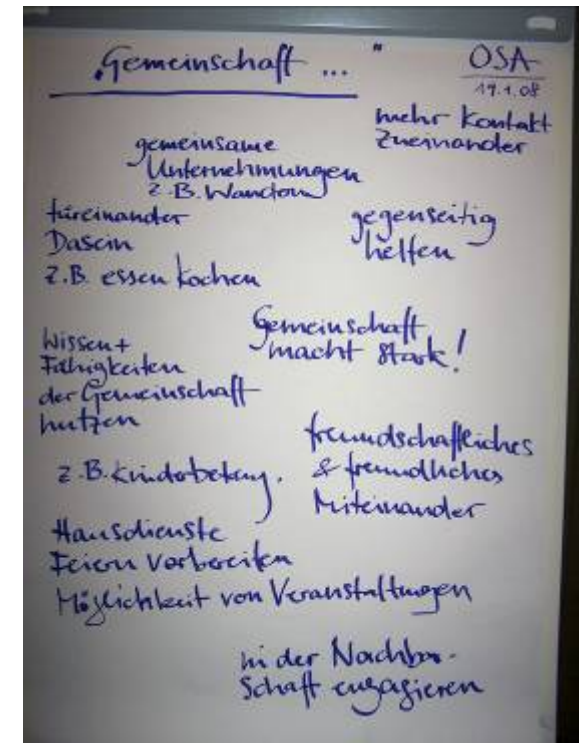 „Gemeinschaft ..."
OSA
19.1.08
mehr Kontakt
zueinander
gemeinsame
Unternehmungen
z.B. Wandern
füreinander
Dasein
z.B. essen kochen
gegenseitig
helfen
Gemeinschaft
macht stark!
Wissen +
Fähigkeiten
der Gemeinschaft
nutzen
z.B. Kinderbetreug.
freundschaftliches
& freundliches
Miteinander
Hausdienste
Feiern vorbereiten
Möglichkeit von Veranstaltungen
in der Nachbar-
schaft engagieren